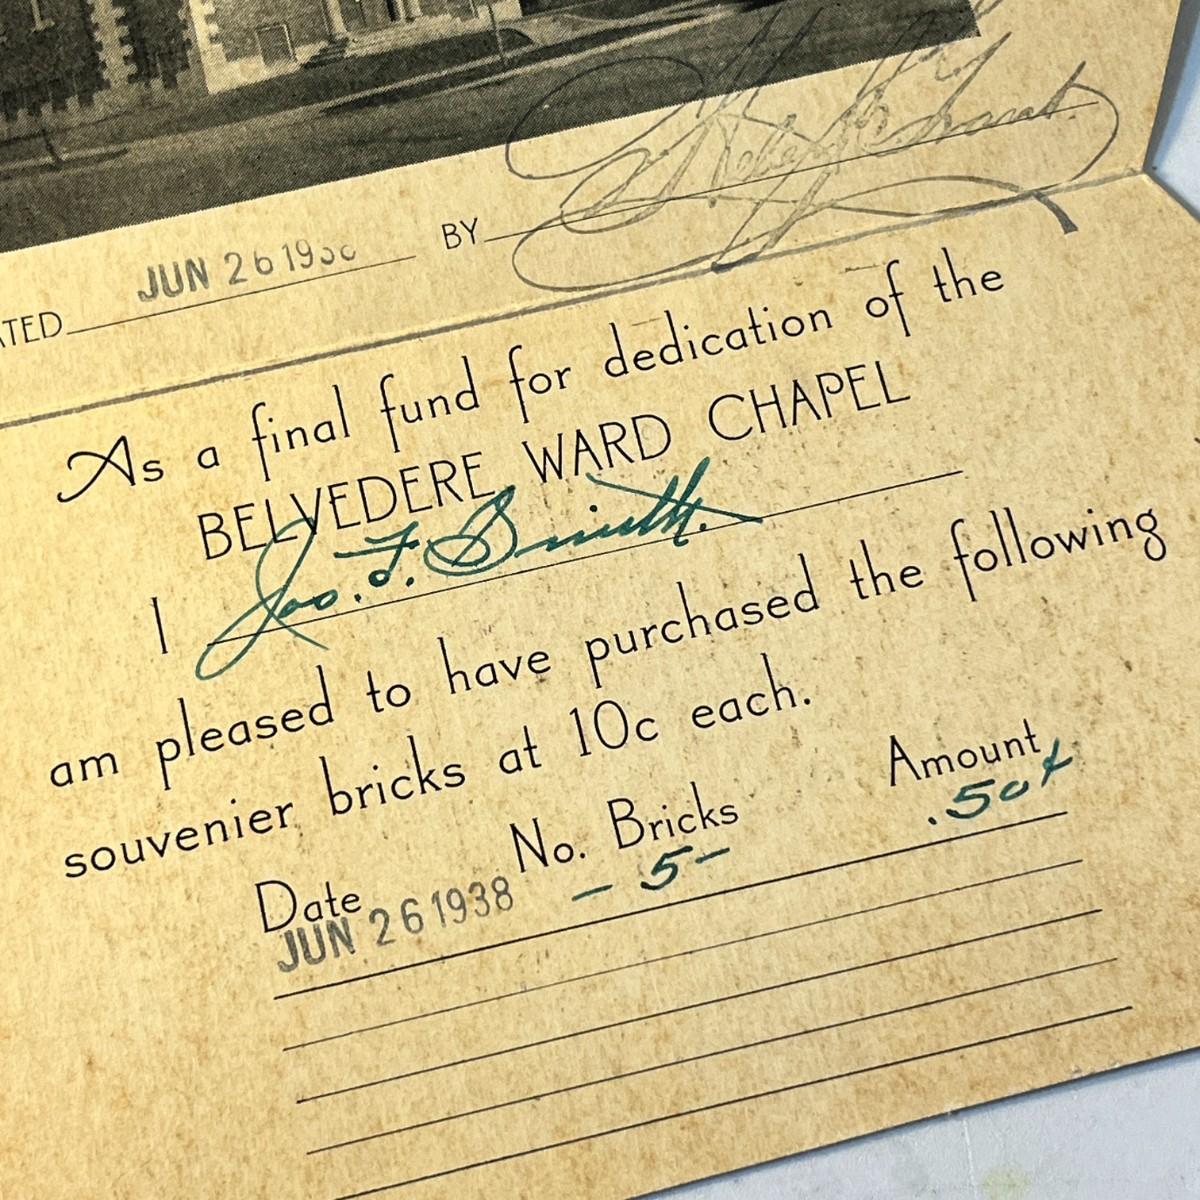 JUN 26 1938
BY
ATED
As a final fund for dedication of the
BELVEDERE WARD CHAPEL
I Jos. F. Smith.
am pleased to have purchased the following
souvenier bricks at 10c each.
Date No. Bricks Amount
JUN 26 1938 - 5 - .50¢